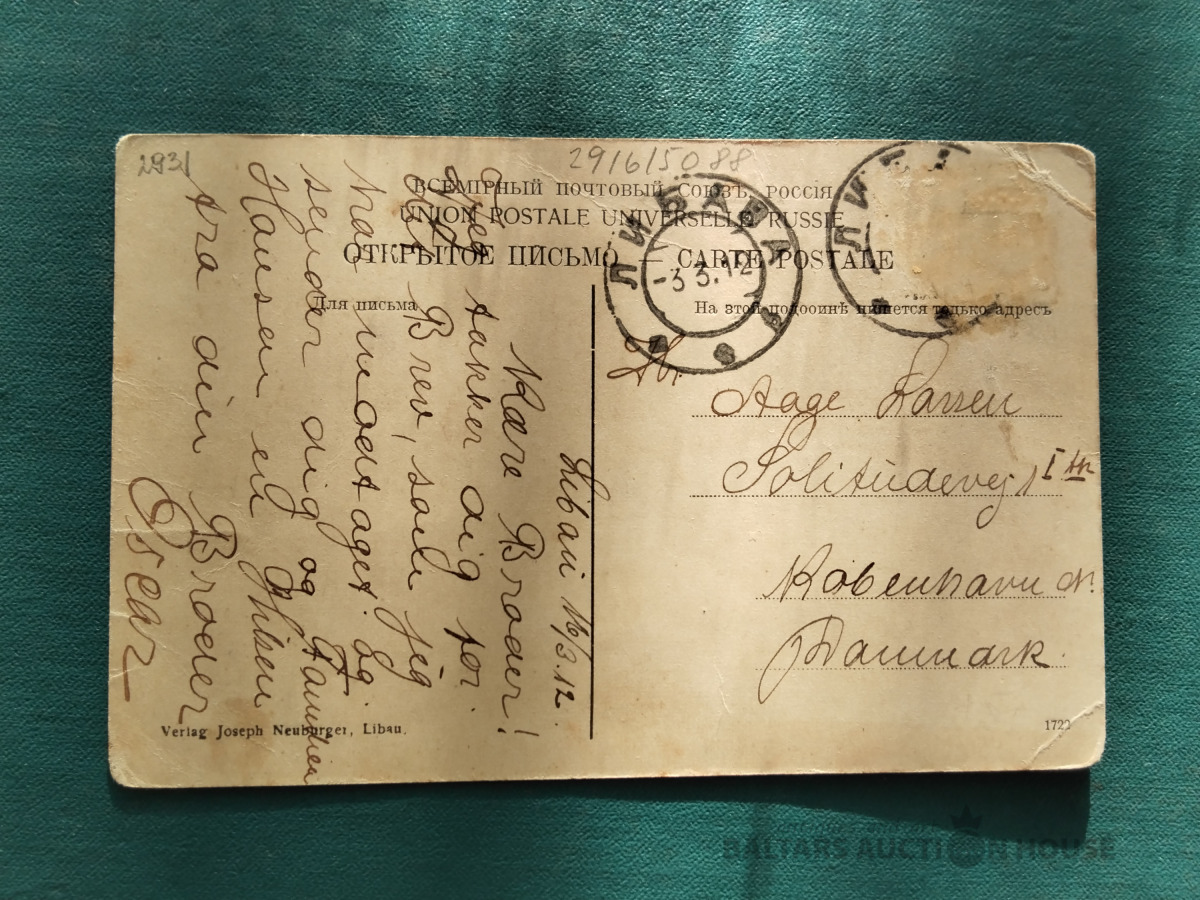 2931
29/6/5088
ВСЕМІРНЫЙ ПОЧТОВЫЙ СОЮЗЪ, РОССІЯ
UNION POSTALE UNIVERSELLE RUSSIE
ОТКРЫТОЕ ПИСЬМО — CARTE POSTALE
Для письма
На этой сторонѣ пишется только адресъ
ЛИБАВА
-3 3.12
ЛИБ
Libau 16/3.12.
Kære Broder!
Jeg takker dig for
dit Brev, som jeg
har modtaget.
sender dig og Familien
Hansen en Hilsen
fra din Broder
Oscar
Hr.
Aage Larsen
Solitudevej 1 I th
København N.
Danmark.
Verlag Joseph Neuburger, Libau.
1722
BALTARS AUCTION HOUSE